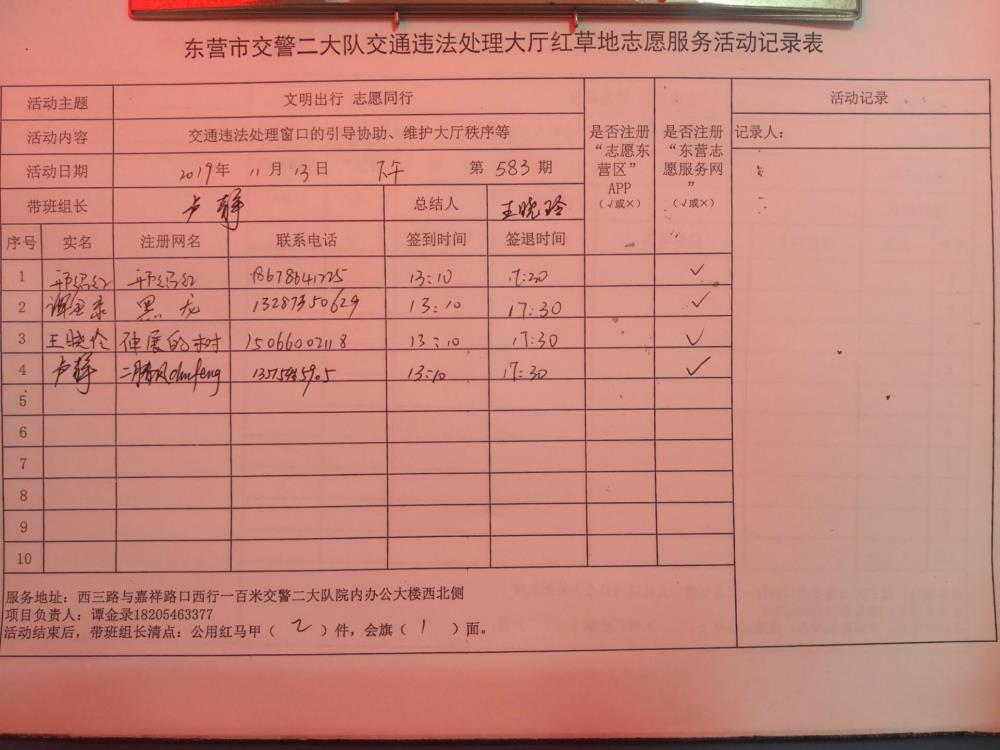 东营市交警二大队交通违法处理大厅红草地志愿服务活动记录表
活动主题 文明出行 志愿同行 活动记录
活动内容 交通违法处理窗口的引导协助、维护大厅秩序等
是否注册“志愿东营区”APP（√或×）
是否注册“东营志愿服务网”（√或×）
记录人：
活动日期 2019年 11月 13日 下午 第 583 期
带班组长 卢静 总结人 王晓玲
序号 实名 注册网名 联系电话 签到时间 签退时间
1 13:10 17:30 ✓
2 谭金录 黑龙 13287350629 13:10 17:30 ✓
3 王晓玲 伸展的树 15066002118 13:10 17:30 ✓
4 卢静 二月春风chunfeng 13:10 17:30 ✓
5
6
7
8
9
10
服务地址：西三路与嘉祥路口西行一百米交警二大队院内办公大楼西北侧
项目负责人：谭金录18205463377
活动结束后，带班组长清点：公用红马甲（ 2 ）件，会旗（ 1 ）面。